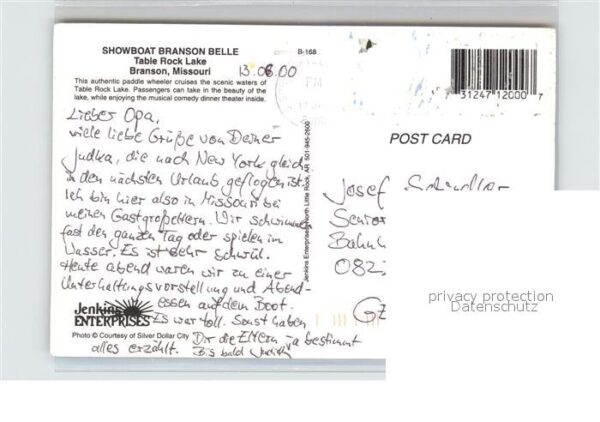 SHOWBOAT BRANSON BELLE
Table Rock Lake
Branson, Missouri
This authentic paddle wheeler cruises the scenic waters of
Table Rock Lake. Passengers can take in the beauty of the
lake, while enjoying the musical comedy dinner theater inside.
B-168
13.08.00
PM
7 31247 12000 7
Lieber Opa,
viele liebe Grüße von Deiner
die nach New York gleich
in den nächsten Urlaub geflogen ist.
Ich bin hier also in Missouri bei
meinen Gastgroßeltern. Wir schwimmen
fast den ganzen Tag oder spielen im
Wasser. Es ist sehr schwül.
Heute abend waren wir zu einer
Unterhaltungsvorstellung und Abend-
essen auf dem Boot.
Es war toll. Sonst haben
Dir die Eltern ja bestimmt
alles erzählt. Bis bald Judith
Jenkins
ENTERPRISES
Photo © Courtesy of Silver Dollar City
Jenkins Enterprises North Little Rock, AR 501-945-2600
POST CARD
Josef
Senior
Bahnh
082
privacy protection
Datenschutz